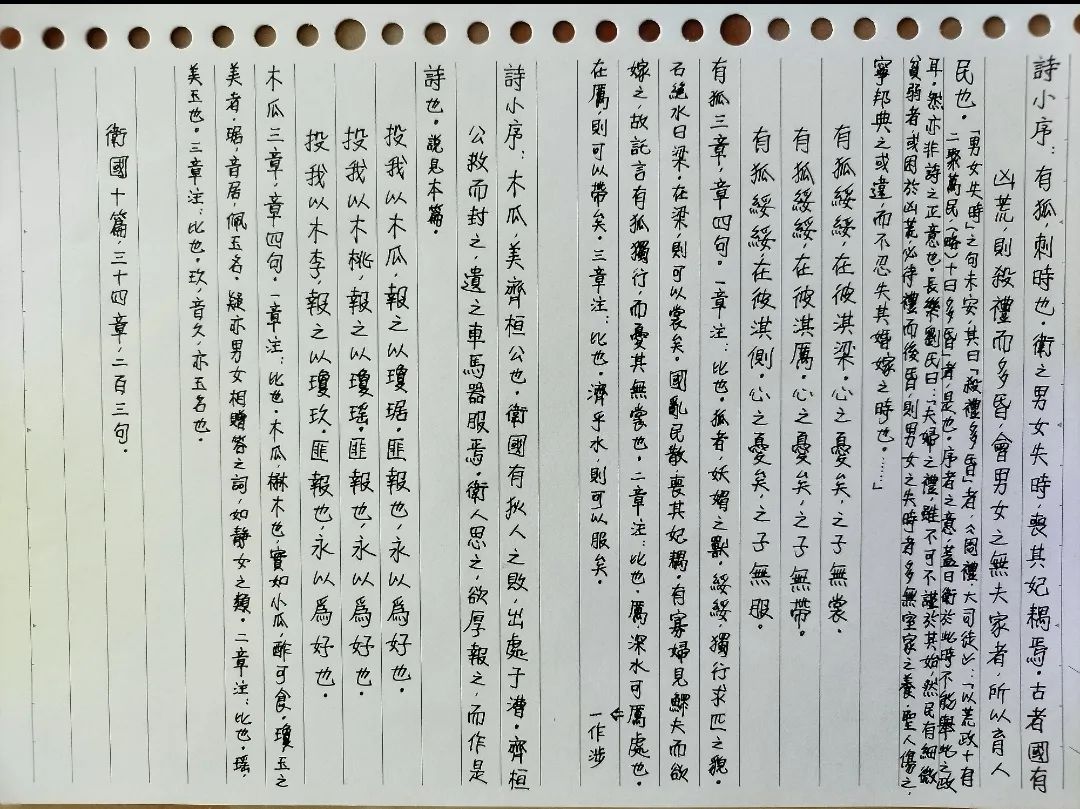 詩小序：有狐，刺時也。衛之男女失時，喪其妃耦焉。古者國有
凶荒，則殺禮而多昏，會男女之無夫家者，所以育人
民也。「男女失時」之句未安，其曰「殺禮多昏」者，《周禮·大司徒》：「以荒政十有
二聚萬民(略)十曰多昏」者，是也。序者之意，蓋曰衛於此時不能舉此之政
耳。然亦非詩之正意也。長樂劉氏曰：「夫婦之禮，雖不可不謹於其始，然民有細微
貧弱者，或困於凶荒，必待禮而後昏，則男女之失時者多，無室家之養。聖人傷之，
寧邦典之或違，而不忍失其婚嫁之時也。……」
有狐綏綏，在彼淇梁。心之憂矣，之子無裳。
有狐綏綏，在彼淇厲。心之憂矣，之子無帶。
有狐綏綏，在彼淇側，心之憂矣，之子無服。
有狐三章，章四句。一章注：比也。狐者，妖媚之獸。綏綏，獨行求匹之貌。
石絕水曰梁。在梁，則可以裳矣。國亂民散，喪其妃耦。有寡婦見鰥夫而欲
嫁之，故託言有狐獨行，而憂其無裳也。二章注：比也。厲，深水可厲處也。
在厲，則可以帶矣。三章注：比也。濟乎水，則可以服矣。
⇐一作涉
詩小序：木瓜，美齊桓公也。衛國有狄人之敗，出處于漕。齊桓
公救而封之，遺之車馬器服焉。衛人思之，欲厚報之，而作是
詩也。說見本篇。
投我以木瓜，報之以瓊琚。匪報也，永以爲好也。
投我以木桃，報之以瓊瑤。匪報也，永以爲好也。
投我以木李，報之以瓊玖。匪報也，永以爲好也。
木瓜三章，章四句。一章注：比也。木瓜，楙木也，實如小瓜，酢可食。瓊，玉之
美者，琚，音居，佩玉名。疑亦男女相贈答之詞，如靜女之類。二章注：比也。瑤，
美玉也。三章注：比也。玖，音久，亦玉名也。
衛國十篇，三十四章，二百三句。